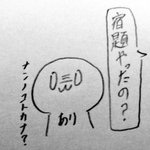 宿題やったの？
あり
ナンノコトカナ？